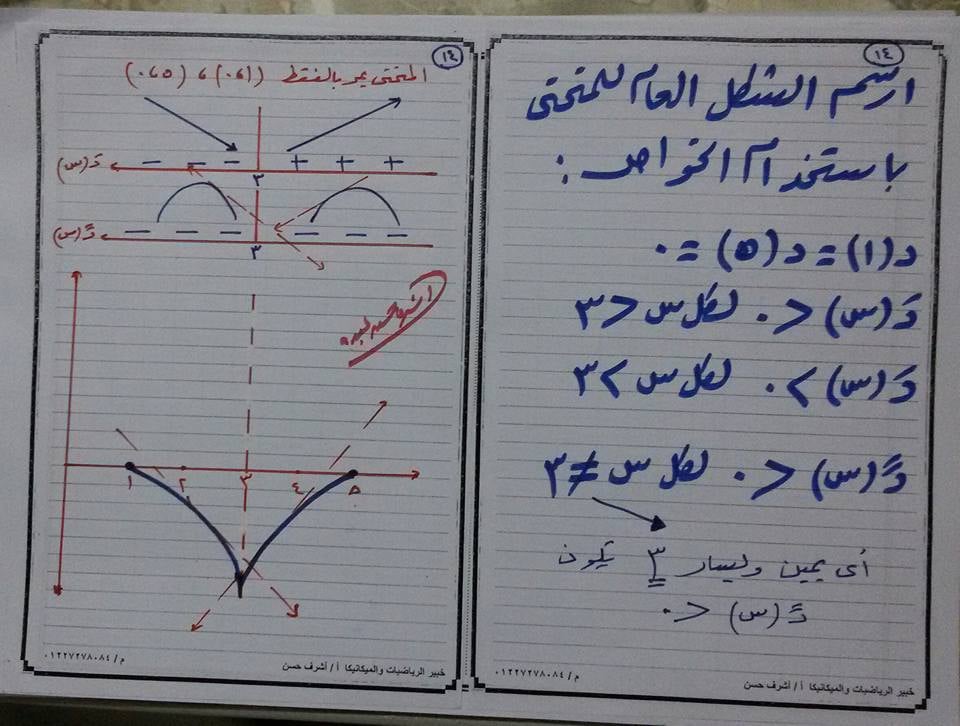 ١٤
ارسم الشكل العام للمنحنى
باستخدام الخواص :
د(١) = د(٥) = ٠
دَ(س) < ٠ لكل س < ٣
دَ(س) > ٠ لكل س > ٣
دً(س) < ٠ لكل س ≠ ٣
أى يمين ويسار ٣ يكون
دً(س) < ٠
خبير الرياضيات والميكانيكا أ / أشرف حسن
م / ٠١٢٢٧٢٧٨٠٨٤
١٤
المنحنى يمر بالنقط (١،٠) ، (٥،٠)
دَ(س) − − − + + +
٣
دً(س) − − − − − −
٣
١ ٢ ٣ ٤ ٥
خبير الرياضيات والميكانيكا أ / أشرف حسن
م / ٠١٢٢٧٢٧٨٠٨٤